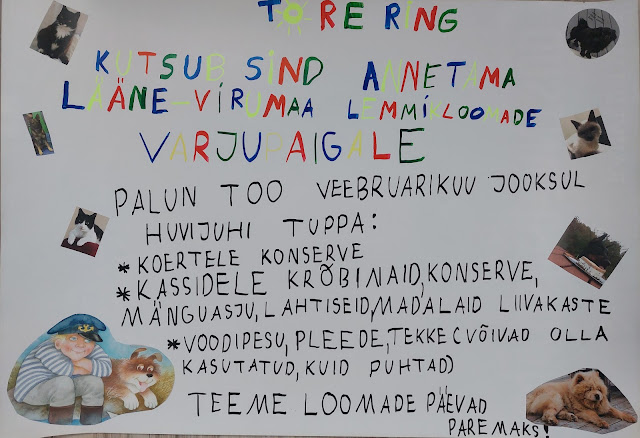 TORE RING
KUTSUB SIND ANNETAMA
LÄÄNE-VIRUMAA LEMMIKLOOMADE
VARJUPAIGALE
PALUN TOO VEEBRUARIKUU JOOKSUL
HUVIJUHI TUPPA:
* KOERTELE KONSERVE
* KASSIDELE KRÕBINAID, KONSERVE,
MÄNGUASJU, LAHTISEID, MADALAID LIIVAKASTE
* VOODIPESU, PLEEDE, TEKKE (VÕIVAD OLLA
KASUTATUD, KUID PUHTAD)
TEEME LOOMADE PÄEVAD
PAREMAKS!